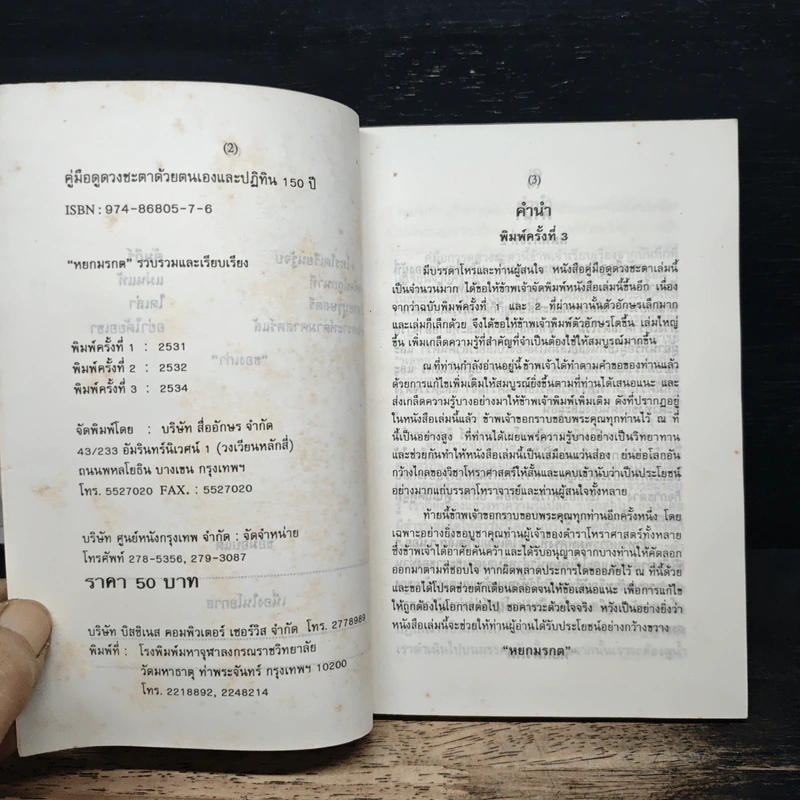 (2)
คู่มือดูดวงชะตาด้วยตนเองและปฏิทิน 150 ปี
ISBN : 974-86805-7-6
"หยกมรกต" รวบรวมและเรียบเรียง
พิมพ์ครั้งที่ 1 : 2531
พิมพ์ครั้งที่ 2 : 2532
พิมพ์ครั้งที่ 3 : 2534
จัดพิมพ์โดย : บริษัท สื่ออักษร จำกัด
43/233 อัมรินทร์นิเวศน์ 1 (วงเวียนหลักสี่)
ถนนพหลโยธิน บางเขน กรุงเทพฯ
โทร. 5527020 FAX. : 5527020
บริษัท ศูนย์หนังกรุงเทพ จำกัด : จัดจำหน่าย
โทรศัพท์ 278-5356, 279-3087
ราคา 50 บาท
บริษัท บิสซิเนส คอมพิวเตอร์ เซอร์วิส จำกัด โทร. 2778989
พิมพ์ที่ : โรงพิมพ์มหาจุฬาลงกรณราชวิทยาลัย
วัดมหาธาตุ ท่าพระจันทร์ กรุงเทพฯ 10200
โทร. 2218892, 2248214
(3)
คำนำ
พิมพ์ครั้งที่ 3
มีบรรดาโหรและท่านผู้สนใจ หนังสือคู่มือดูดวงชะตาเล่มนี้
เป็นจำนวนมาก ได้ขอให้ข้าพเจ้าจัดพิมพ์หนังสือเล่มนี้ขึ้นอีก เนื่อง
จากว่าฉบับพิมพ์ครั้งที่ 1 และ 2 ที่ผ่านมานั้นตัวอักษรเล็กมาก
และเล่มก็เล็กด้วย จึงได้ขอให้ข้าพเจ้าพิมพ์ตัวอักษรโตขึ้น เล่มใหญ่
ขึ้น เพิ่มเกล็ดความรู้ที่สำคัญที่จำเป็นต้องใช้ให้สมบูรณ์มากขึ้น
ณ ที่ท่านกำลังอ่านอยู่นี้ ข้าพเจ้าได้ทำตามคำขอของท่านแล้ว
ด้วยการแก้ไขเพิ่มเติมให้สมบูรณ์ยิ่งขึ้นตามที่ท่านได้เสนอแนะ และ
ส่งเกล็ดความรู้บางอย่างมาให้ข้าพเจ้าพิมพ์เพิ่มเติม ดังที่ปรากฏอยู่
ในหนังสือเล่มนี้แล้ว ข้าพเจ้าขอกราบขอบพระคุณทุกท่านไว้ ณ ที่
นี้เป็นอย่างสูง ที่ท่านได้เผยแพร่ความรู้บางอย่างเป็นวิทยาทาน
และช่วยกันทำให้หนังสือเล่มนี้เป็นเสมือนแว่นส่อง ย่นย่อโลกอัน
กว้างไกลของวิชาโหราศาสตร์ให้สั้นและแคบเข้านับว่าเป็นประโยชน์
อย่างมากแก่บรรดาโหราจารย์และท่านผู้สนใจทั้งหลาย
ท้ายนี้ข้าพเจ้าขอกราบขอบพระคุณทุกท่านอีกครั้งหนึ่ง โดย
เฉพาะอย่างยิ่งขอบูชาคุณท่านผู้เจ้าของตำราโหราศาสตร์ทั้งหลาย
ซึ่งข้าพเจ้าได้อาศัยค้นคว้าและได้รับอนุญาตจากบางท่านให้คัดลอก
ออกมาตามที่ชอบใจ หากผิดพลาดประการใดขออภัยไว้ ณ ที่นี้ด้วย
และขอได้โปรดช่วยตักเตือนตลอดจนให้ข้อเสนอแนะ เพื่อการแก้ไข
ให้ถูกต้องในโอกาสต่อไป ขอคารวะด้วยใจจริง หวังเป็นอย่างยิ่งว่า
หนังสือเล่มนี้จะช่วยให้ท่านผู้อ่านได้รับประโยชน์อย่างกว้างขวาง
"หยกมรกต"